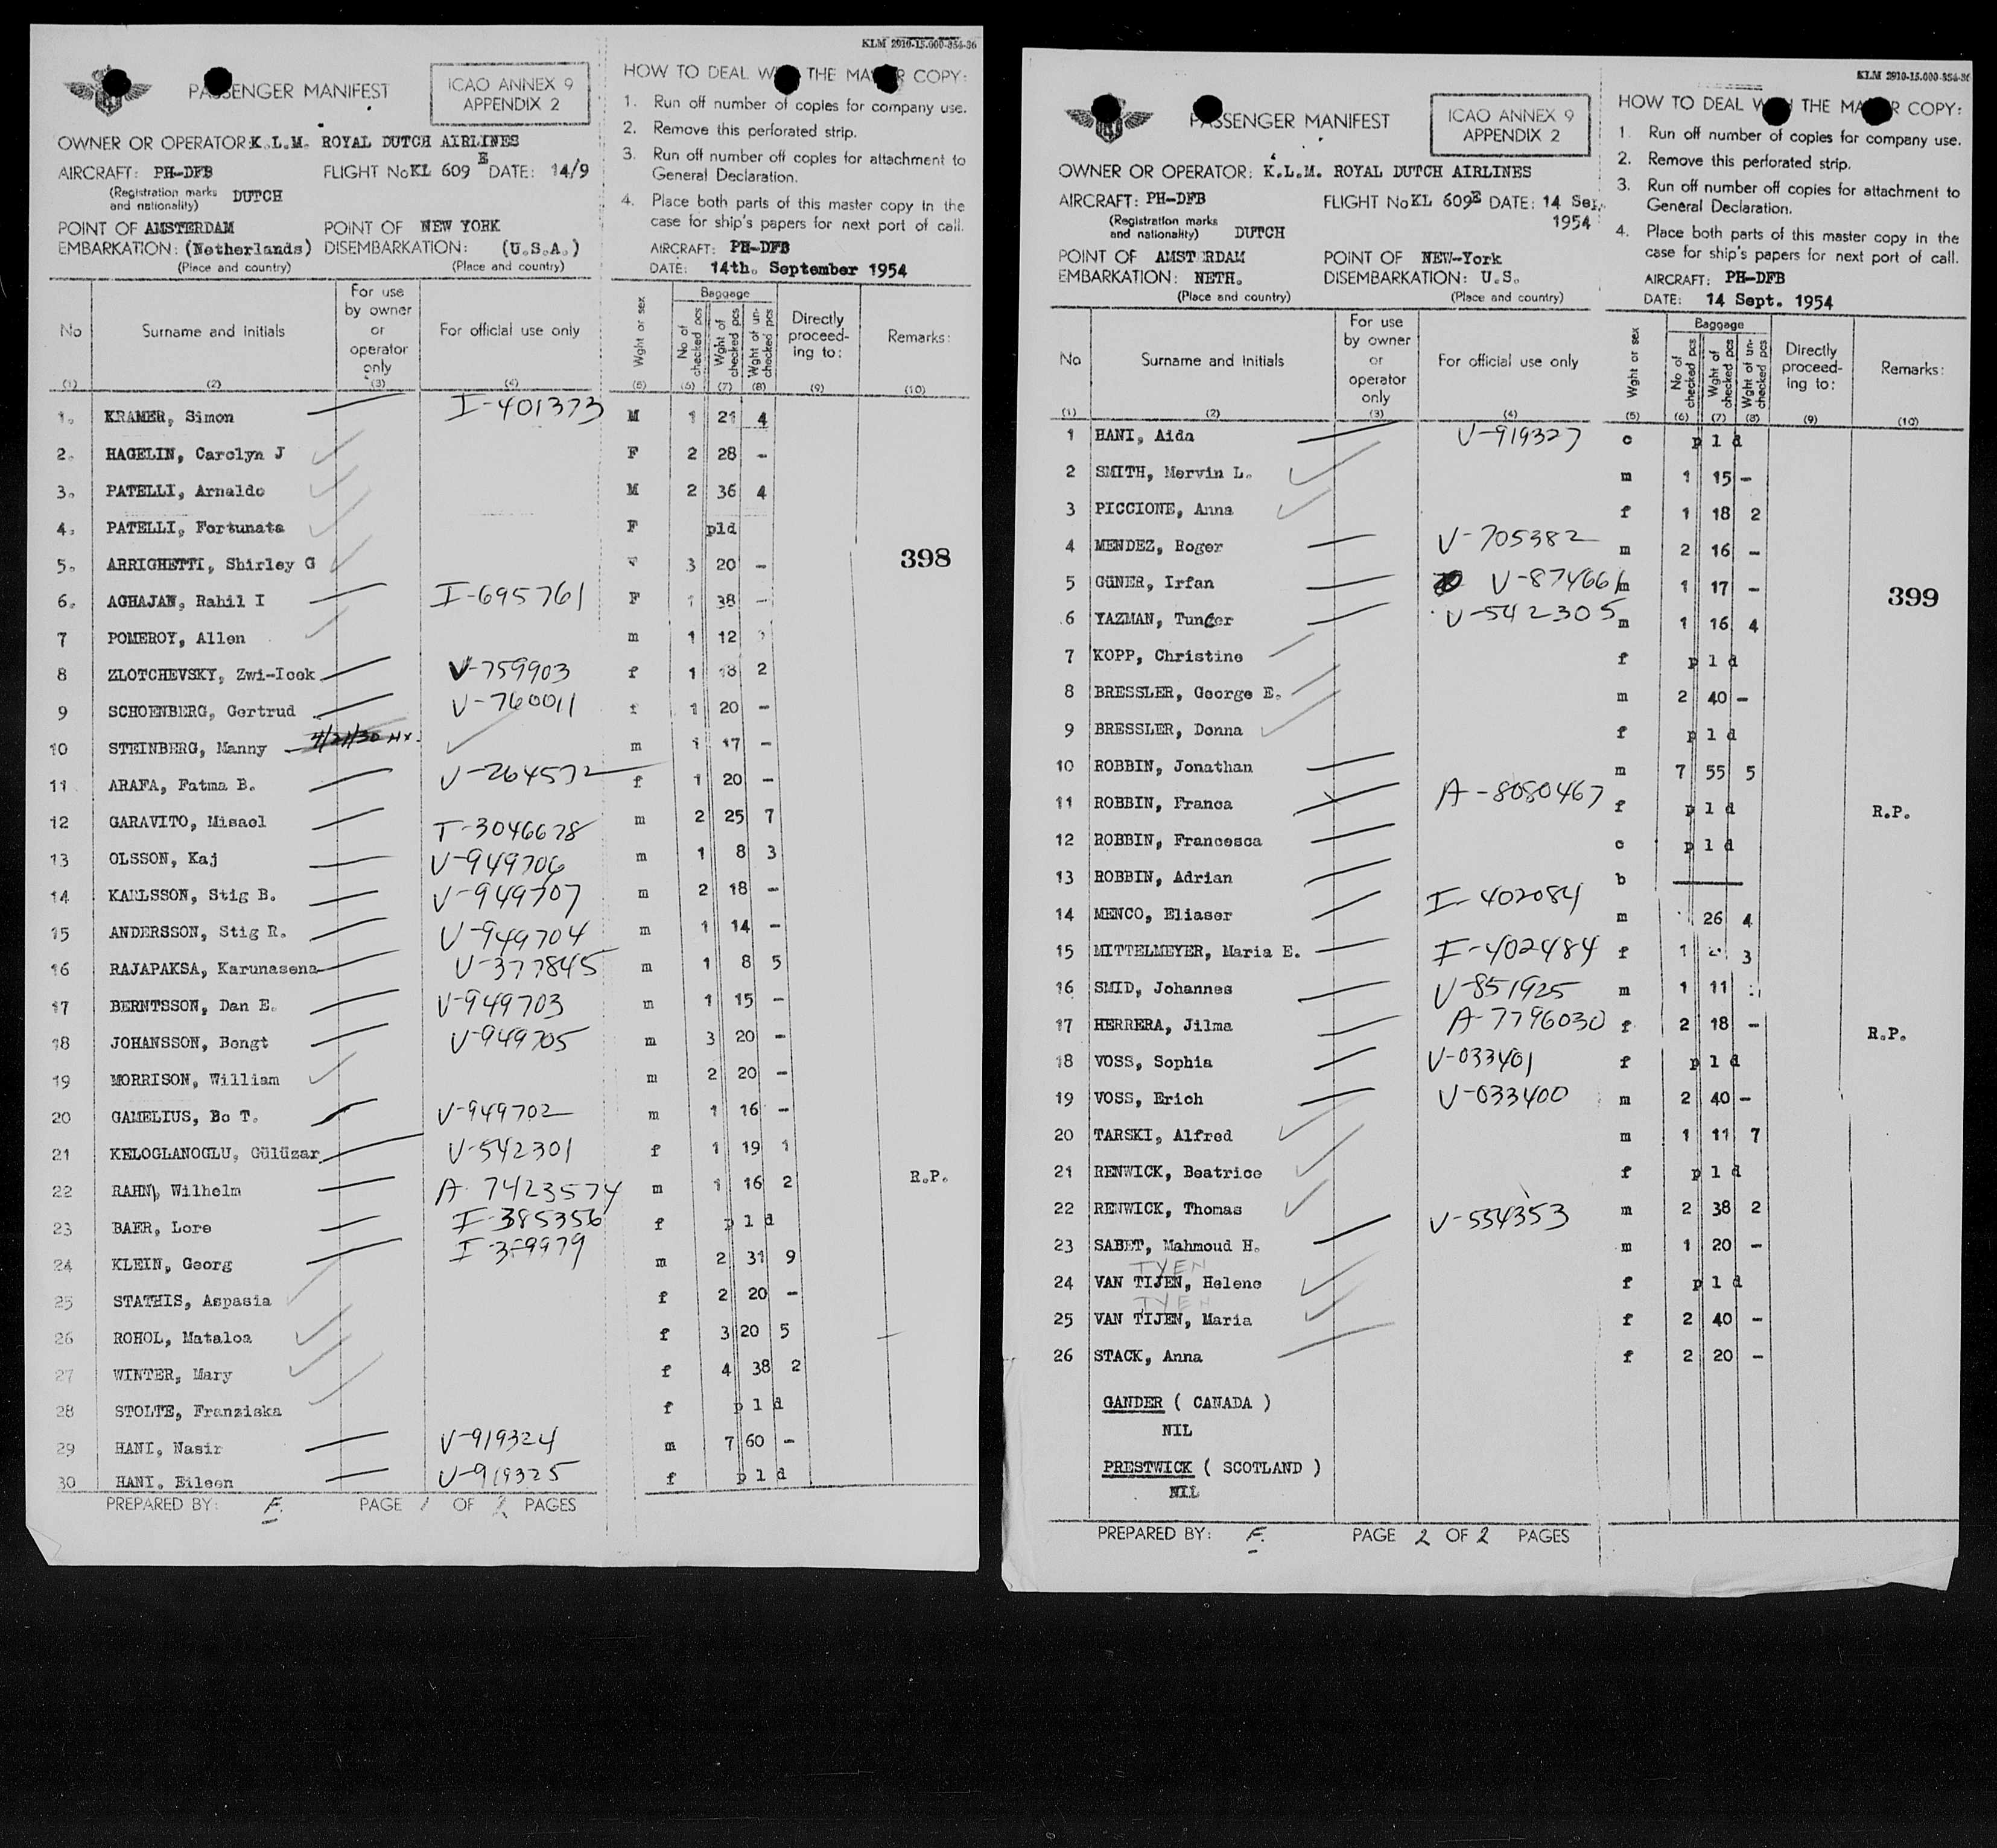 KLM 2910-15.000-854-36
PASSENGER MANIFEST
ICAO ANNEX 9
APPENDIX 2
OWNER OR OPERATOR: K.L.M. ROYAL DUTCH AIRLINES
AIRCRAFT: PH-DFB FLIGHT No KL 609 E DATE: 14/9
(Registration marks and nationality) DUTCH
POINT OF EMBARKATION: AMSTERDAM (Netherlands) POINT OF DISEMBARKATION: NEW YORK (U.S.A.)
(Place and country) (Place and country)
HOW TO DEAL WITH THE MASTER COPY:
1. Run off number of copies for company use.
2. Remove this perforated strip.
3. Run off number off copies for attachment to
General Declaration.
4. Place both parts of this master copy in the
case for ship's papers for next port of call.
AIRCRAFT: PH-DFB
DATE: 14th. September 1954
No Surname and initials For use by owner or operator only For official use only Wght or sex Baggage No of checked pcs Wght of checked pcs Wght of un-checked pcs Directly proceed-ing to: Remarks:
(1) (2) (3) (4) (5) (6) (7) (8) (9) (10)
1. KRAMER, Simon I-401373 M 1 21 4
2. HAGELIN, Carolyn J F 2 28 -
3. PATELLI, Arnaldo M 2 36 4
4. PATELLI, Fortunata F pld
398
5. ARRIGHETTI, Shirley G 3 20 -
6. AGHAJAN, Rahil I I-695761 F 1 38 -
7 POMEROY, Allen m 1 12
8 ZLOTCHEVSKY, Zwi-Icek V-759903 f 1 18 2
9 SCHOENBERG, Gertrud V-760011 f 1 20 -
10 STEINBERG, Manny 4/21/30 m 1 17 -
11 ARAFA, Fatma B. V-264572 f 1 20 -
12 GARAVITO, Misael T-3046678 m 2 25 7
13 OLSSON, Kaj V-949706 m 1 8 3
14 KARLSSON, Stig B. V-949707 m 2 18 -
15 ANDERSSON, Stig R. V-949704 m 1 14 -
16 RAJAPAKSA, Karunasena V-377845 m 1 8 5
17 BERNTSSON, Dan E. V-949703 m 1 15 -
18 JOHANSSON, Bengt V-949705 m 3 20 -
19 MORRISON, William m 2 20 -
20 GAMELIUS, Bo T. V-949702 m 1 16 -
21 KELOGLANOGLU, Gülüzar V-542301 f 1 19 1
22 RAHN, Wilhelm A-7423574 m 1 16 2 R.P.
23 BAER, Lore I-385356 f pld
24 KLEIN, Georg m 2 31 9
25 STATHIS, Aspasia f 2 20 -
26 ROHOL, Mataloa f 3 20 5
27 WINTER, Mary f 4 38 2
28 STOLTE, Franziska f pld
29 HANI, Nasir V-919324 m 7 60 -
30 HANI, Eileen V-919325 f pld
PREPARED BY: F. PAGE 1 OF 2 PAGES
KLM 2910-15.000-854-36
PASSENGER MANIFEST
ICAO ANNEX 9
APPENDIX 2
OWNER OR OPERATOR: K.L.M. ROYAL DUTCH AIRLINES
AIRCRAFT: PH-DFB FLIGHT No KL 609E DATE: 14 Sep. 1954
(Registration marks and nationality) DUTCH
POINT OF EMBARKATION: AMSTERDAM NETH. POINT OF DISEMBARKATION: NEW-York U.S.
(Place and country) (Place and country)
HOW TO DEAL WITH THE MASTER COPY:
1. Run off number of copies for company use.
2. Remove this perforated strip.
3. Run off number off copies for attachment to
General Declaration.
4. Place both parts of this master copy in the
case for ship's papers for next port of call.
AIRCRAFT: PH-DFB
DATE: 14 Sept. 1954
No Surname and initials For use by owner or operator only For official use only Wght or sex Baggage No of checked pcs Wght of checked pcs Wght of un-checked pcs Directly proceed-ing to: Remarks:
(1) (2) (3) (4) (5) (6) (7) (8) (9) (10)
1 HANI, Aida V-919327 c pld
2 SMITH, Mervin L. m 1 15 -
3 PICCIONE, Anna f 1 18 2
4 MENDEZ, Roger V-705382 m 2 16 -
5 GÜNER, Irfan V-874661 m 1 17 -
399
6 YAZMAN, Tuncer V-542305 m 1 16 4
7 KOPP, Christine f pld
8 BRESSLER, George E. m 2 40 -
9 BRESSLER, Donna f pld
10 ROBBIN, Jonathan m 7 55 5
11 ROBBIN, Franca A-8080467 f pld R.P.
12 ROBBIN, Francesca c pld
13 ROBBIN, Adrian b
14 MENCO, Eliaser I-402084 m 26 4
15 MITTELMEYER, Maria E. I-402484 f 1 3
16 SMID, Johannes V-851925 m 1 11
17 HERRERA, Jilma A-7796030 f 2 18 - R.P.
18 VOSS, Sophia V-033401 f pld
19 VOSS, Erich V-033400 m 2 40 -
20 TARSKI, Alfred m 1 11 7
21 RENWICK, Beatrice f pld
22 RENWICK, Thomas m 2 38 2
23 SABET, Mahmoud H. V-534353 m 1 20 -
TYEN
24 VAN TIJEN, Helene f pld
TYEN
25 VAN TIJEN, Maria f 2 40 -
26 STACK, Anna f 2 20 -
GANDER ( CANADA )
NIL
PRESTWICK ( SCOTLAND )
NIL
PREPARED BY: F. PAGE 2 OF 2 PAGES